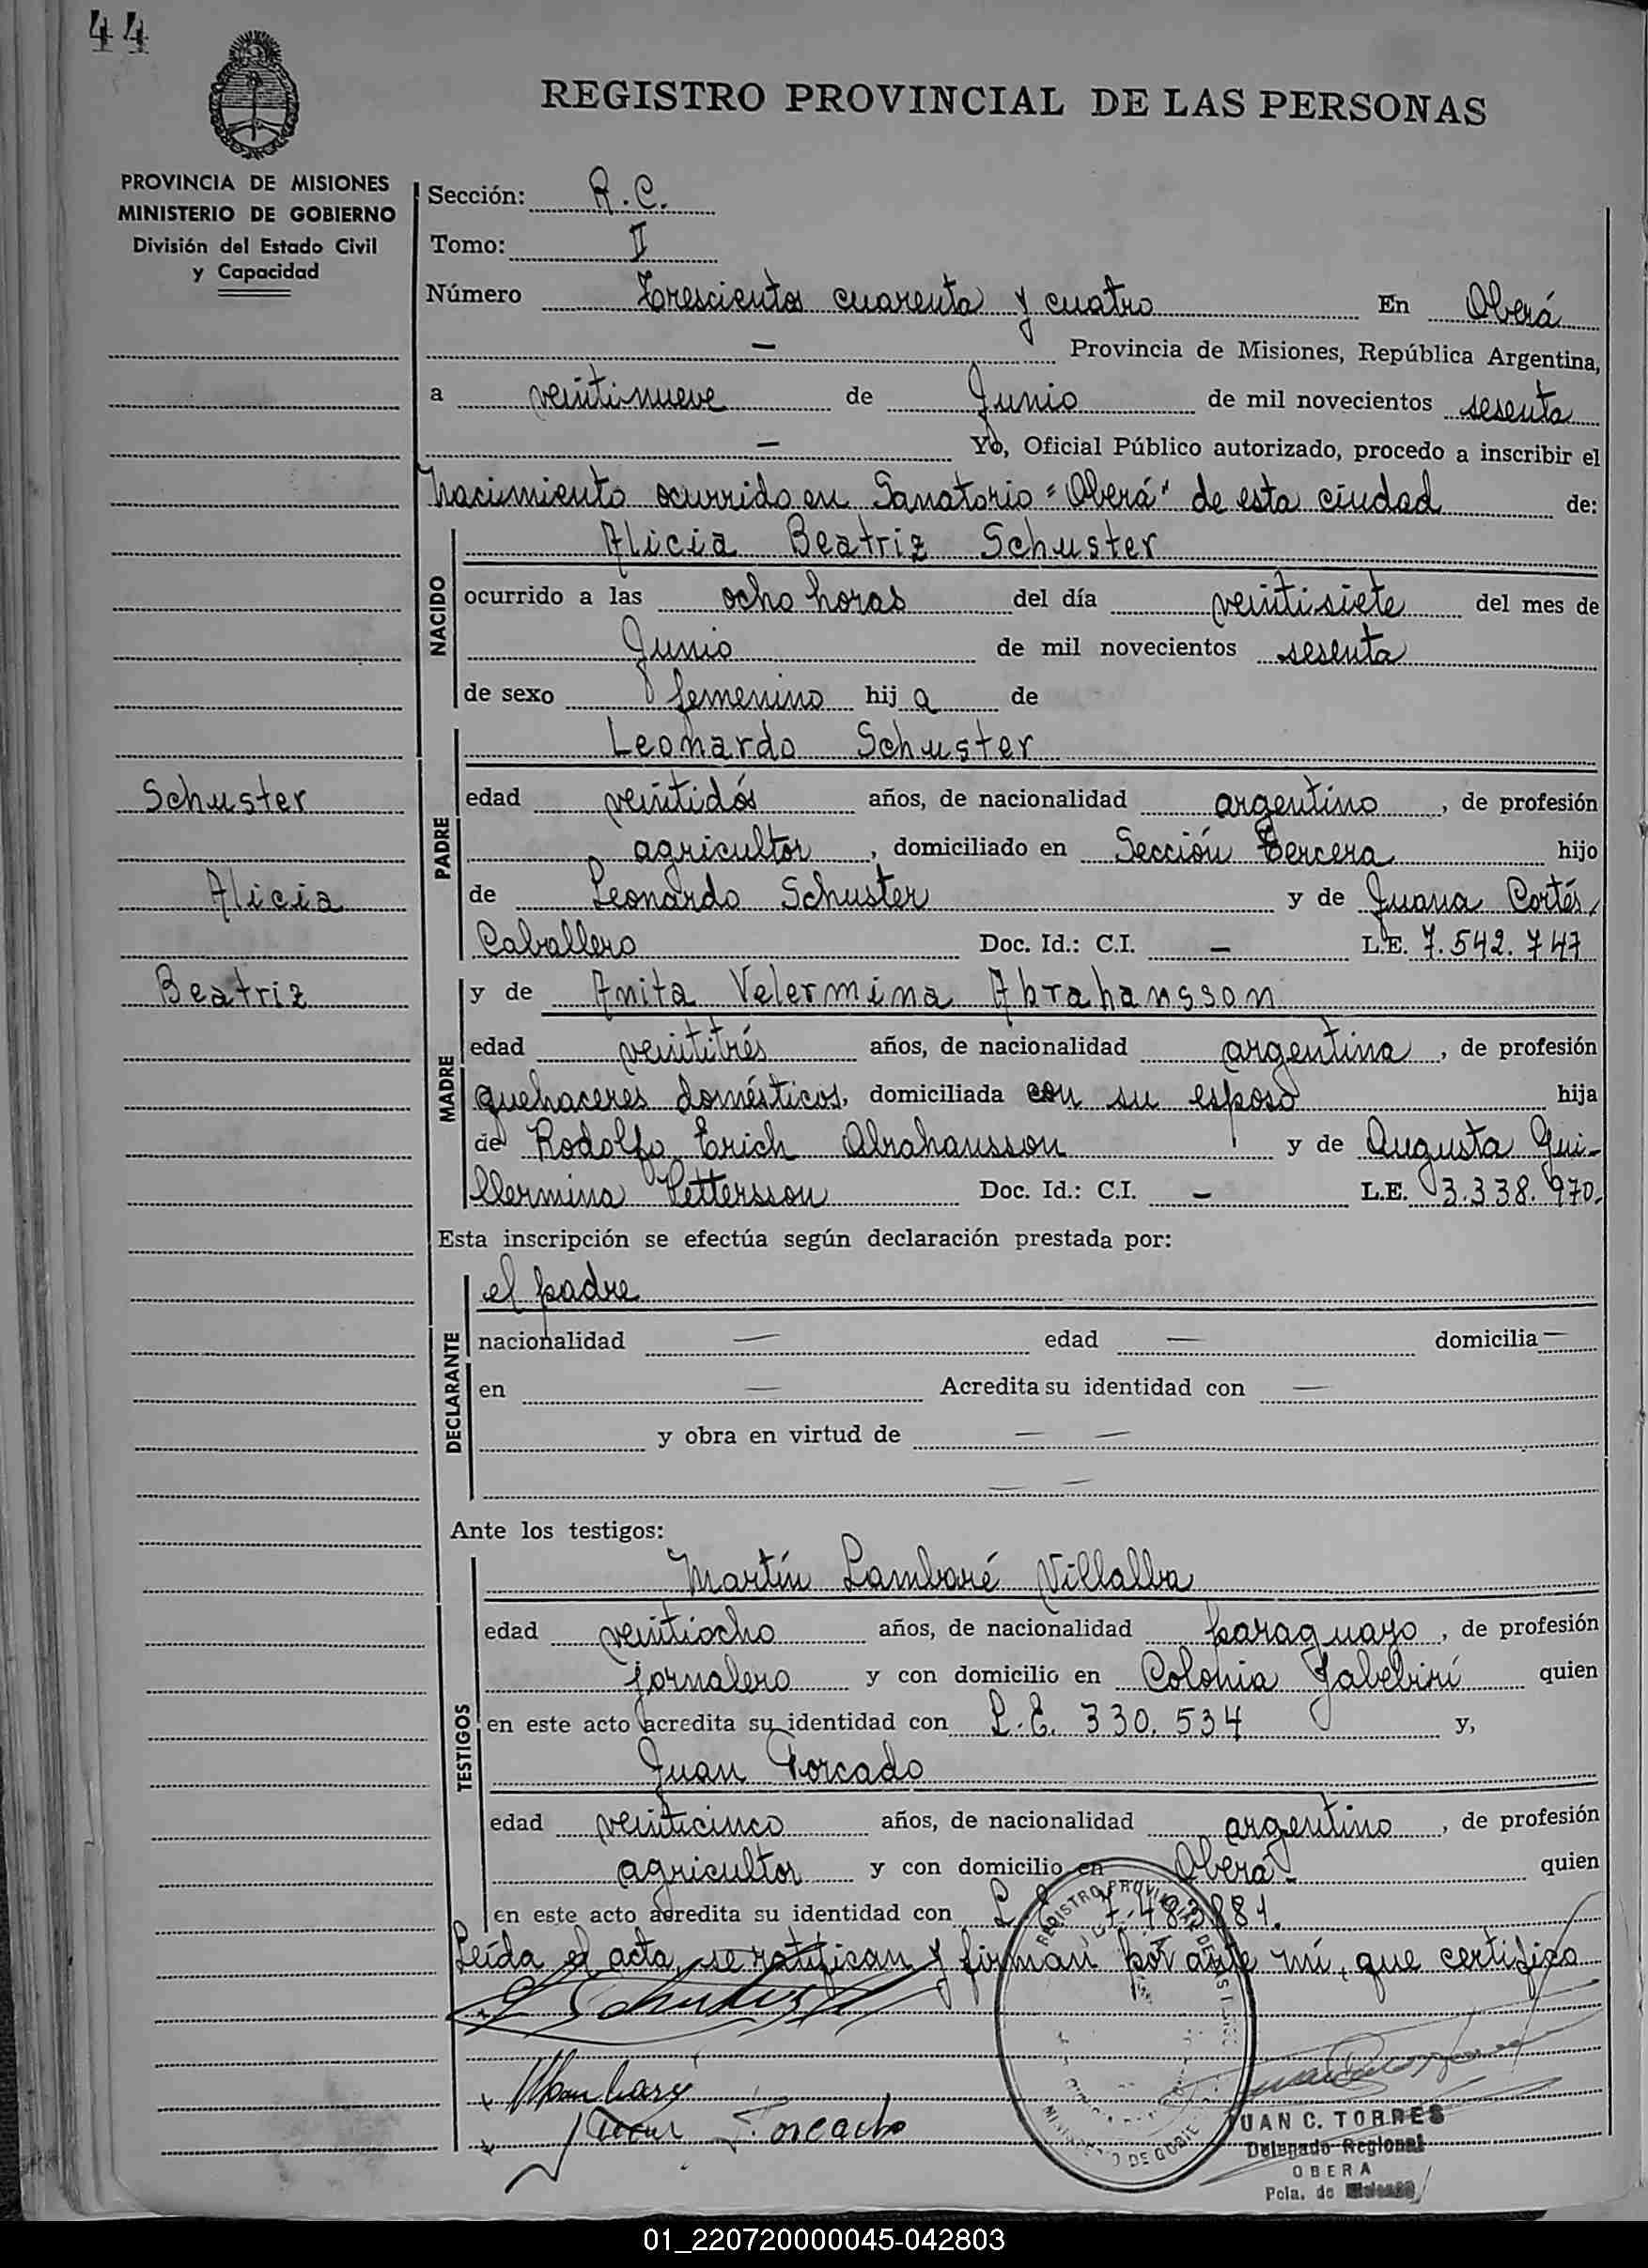 44
REGISTRO PROVINCIAL DE LAS PERSONAS
PROVINCIA DE MISIONES
MINISTERIO DE GOBIERNO
División del Estado Civil
y Capacidad
Sección: R.C.
Tomo: II
Número Trescientos cuarenta y cuatro En Oberá
— Provincia de Misiones, República Argentina,
a veintinueve de Junio de mil novecientos sesenta
— Yo, Oficial Público autorizado, procedo a inscribir el
nacimiento ocurrido en Sanatorio "Oberá" de esta ciudad de:
NACIDO
Alicia Beatriz Schuster
ocurrido a las ocho horas del día veintisiete del mes de
Junio de mil novecientos sesenta
de sexo femenino hij a de
PADRE
Leonardo Schuster
Schuster
Alicia
Beatriz
edad veintidós años, de nacionalidad argentino, de profesión
agricultor, domiciliado en Sección Tercera hijo
de Leonardo Schuster y de Juana Cortés
Caballero Doc. Id.: C.I. — L.E. 7.542.747
MADRE
y de Anita Velermina Abrahansson
edad veintitrés años, de nacionalidad argentina, de profesión
quehaceres domésticos, domiciliada con su esposo hija
de Rodolfo Erich Abrahansson y de Augusta Gui-
llermina Pettersson Doc. Id.: C.I. — L.E. 3.338.970.
Esta inscripción se efectúa según declaración prestada por:
DECLARANTE
el padre
nacionalidad — edad — domicilia —
en — Acredita su identidad con —
y obra en virtud de — —
— —
Ante los testigos:
TESTIGOS
Martín Lambaré Villalba
edad veintiocho años, de nacionalidad paraguayo, de profesión
jornalero y con domicilio en Colonia Yabebirí quien
en este acto acredita su identidad con L.E. 330.534 y,
Juan Forcado
edad veinticinco años, de nacionalidad argentino, de profesión
agricultor y con domicilio en Oberá- quien
en este acto acredita su identidad con L.E. 7.483.881.
Leída el acta, se ratifican y firman por ante mí, que certifico
Juan Forcado
REGISTRO PROVINCIAL DE LAS
JUAN C. TORRES
Delegado Regional
OBERA
Pcia. de Misiones
01_220720000045-042803